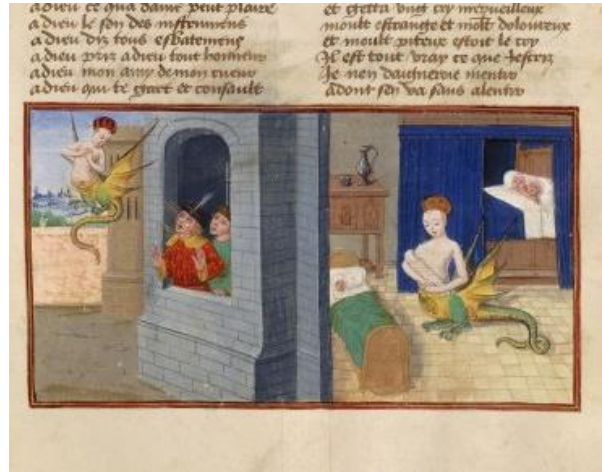 adieu ce qua dame peut plaire
adieu le son des instrumens
adieu diz tous esbatemens
adieu priz adieu tout honneur
adieu mon amy de mon cueur
adieu qui te gart et consault
et gretta vng cry merveilleux
moult estrange et moult doloureux
et moult piteux estoit le cry
Il est tout vray ce que Jescriz
Je nen daigneroie mentir
adont sen va sans alentir